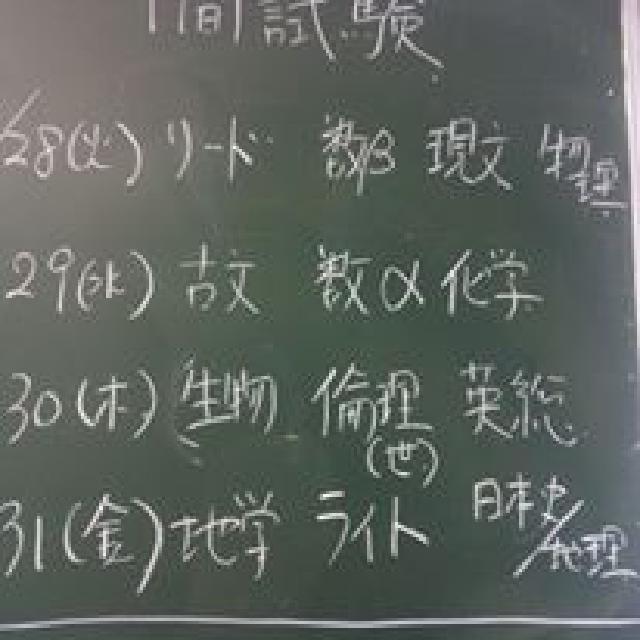 中間試験
/28(火) リード 数β 現文 物理
29(水) 古文 数α 化学
30(木) 生物 倫理 英総
(世)
31(金) 地学 ライト 日本史/地理